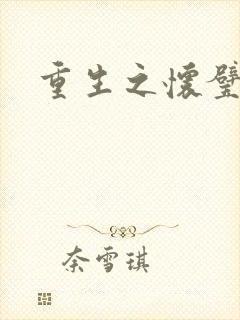 重生之怀璧
奈雪琪